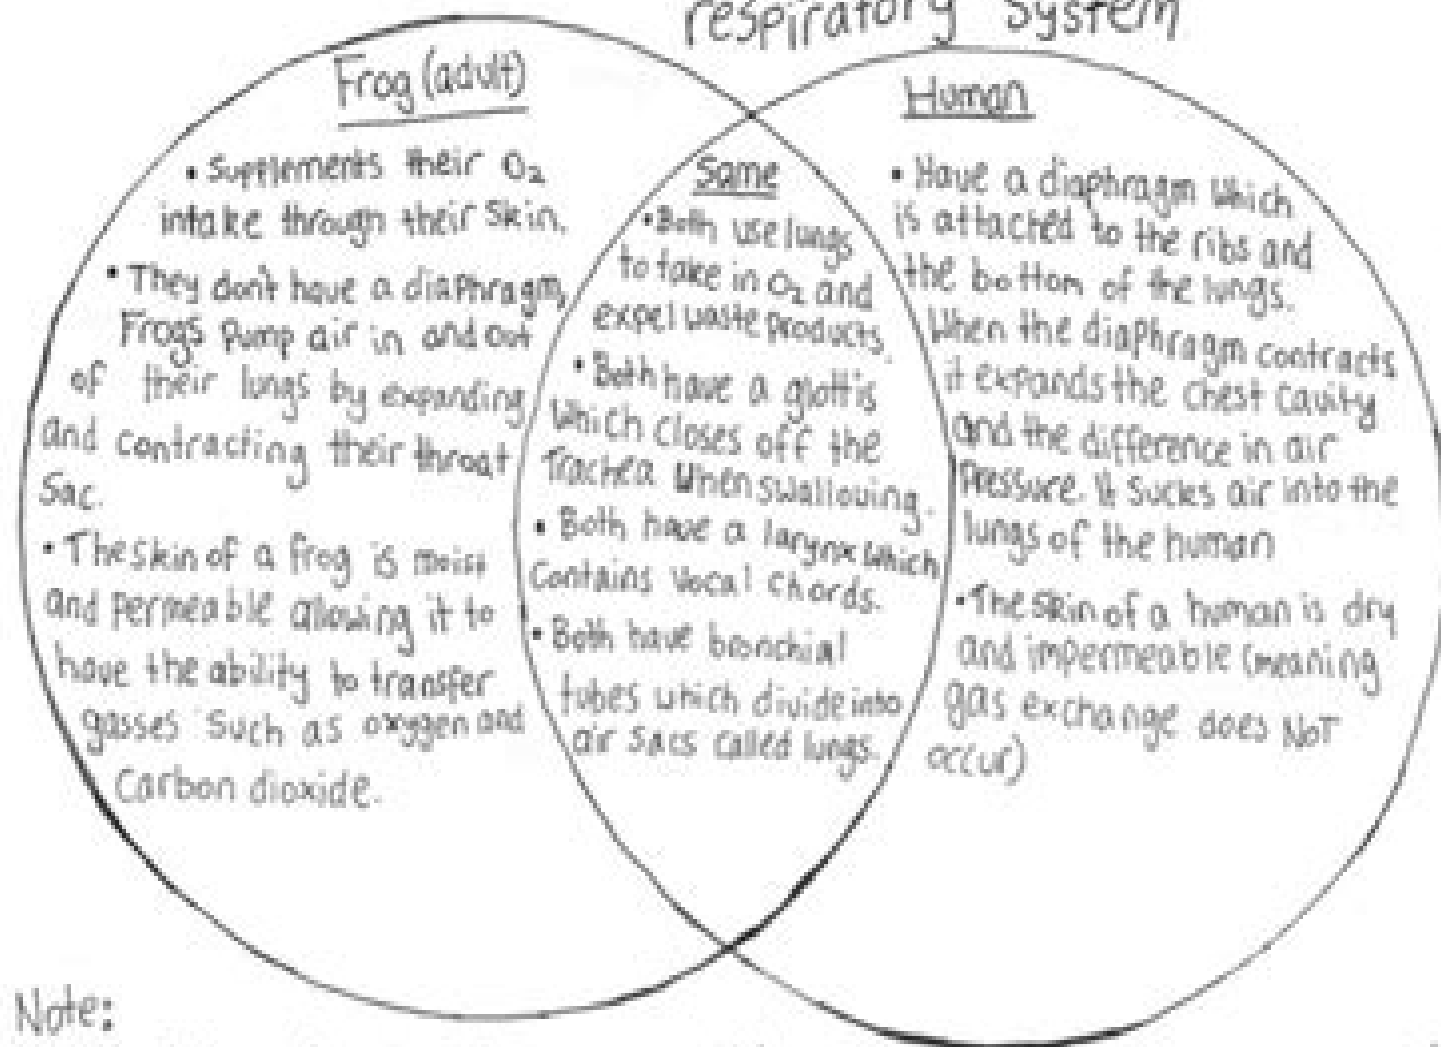 respiratory system
Frog (adult)
• Supplements their O₂
intake through their skin.
• They don't have a diaphragm,
Frogs pump air in and out
of their lungs by expanding
and contracting their throat
Sac.
• The skin of a frog is moist
and permeable allowing it to
have the ability to transfer
gasses such as oxygen and
Carbon dioxide.
Same
• Both use lungs
to take in O₂ and
expel waste products.
• Both have a glottis
Which closes off the
Trachea When swallowing.
• Both have a larynx which
contains vocal chords.
• Both have bronchial
tubes which divide into
air sacs called lungs.
Human
• Have a diaphragm which
is attached to the ribs and
the bottom of the lungs.
When the diaphragm contracts
it expands the chest cavity
and the difference in air
Pressure. It sucks air into the
lungs of the human
• The skin of a human is dry
and impermeable (meaning
gas exchange does NOT
occur)
Note: